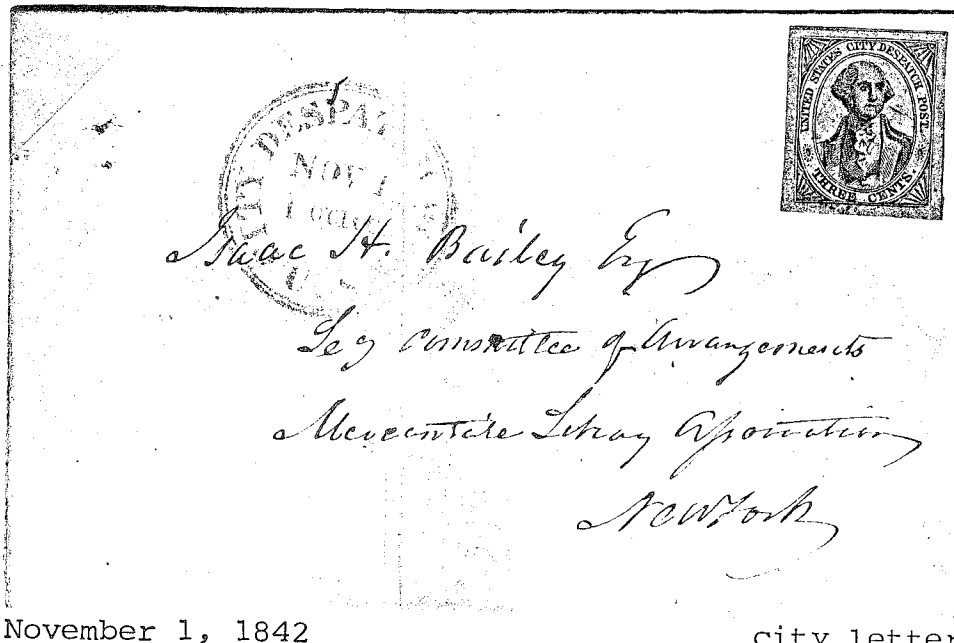 UNITED STATES CITY DESPATCH POST.
THREE CENTS.
CITY DESPATCH POST
NOV 1
U.S
Isaac H. Bailey Esq
Secy Committee of Arrangements
Mercantile Library Association
New York
November 1, 1842
city letter